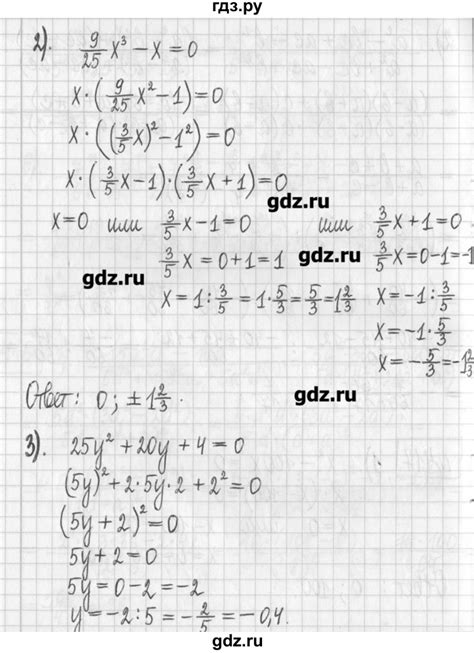 гдз.ру
2). 9/25 x³ − x = 0
x·(9/25 x² − 1) = 0
x·((3/5 x)² − 1²) = 0
x·(3/5 x − 1)·(3/5 x + 1) = 0
x = 0 или 3/5 x − 1 = 0 или 3/5 x + 1 = 0
gdz.ru
3/5 x = 0 + 1 = 1
gdz.ru
3/5 x = 0 − 1 = −1
x = 1 : 3/5 = 1·5/3 = 5/3 = 1 2/3
x = −1 : 3/5
x = −1·5/3
x = −5/3 = −1 2/3
gdz.ru
gdz.ru
Ответ: 0; ±1 2/3.
gdz.ru
3). 25y² + 20y + 4 = 0
(5y)² + 2·5y·2 + 2² = 0
(5y + 2)² = 0
gdz.ru
5y + 2 = 0
5y = 0 − 2 = −2
gdz.ru
y = −2 : 5 = −2/5 = −0,4.
gdz.ru